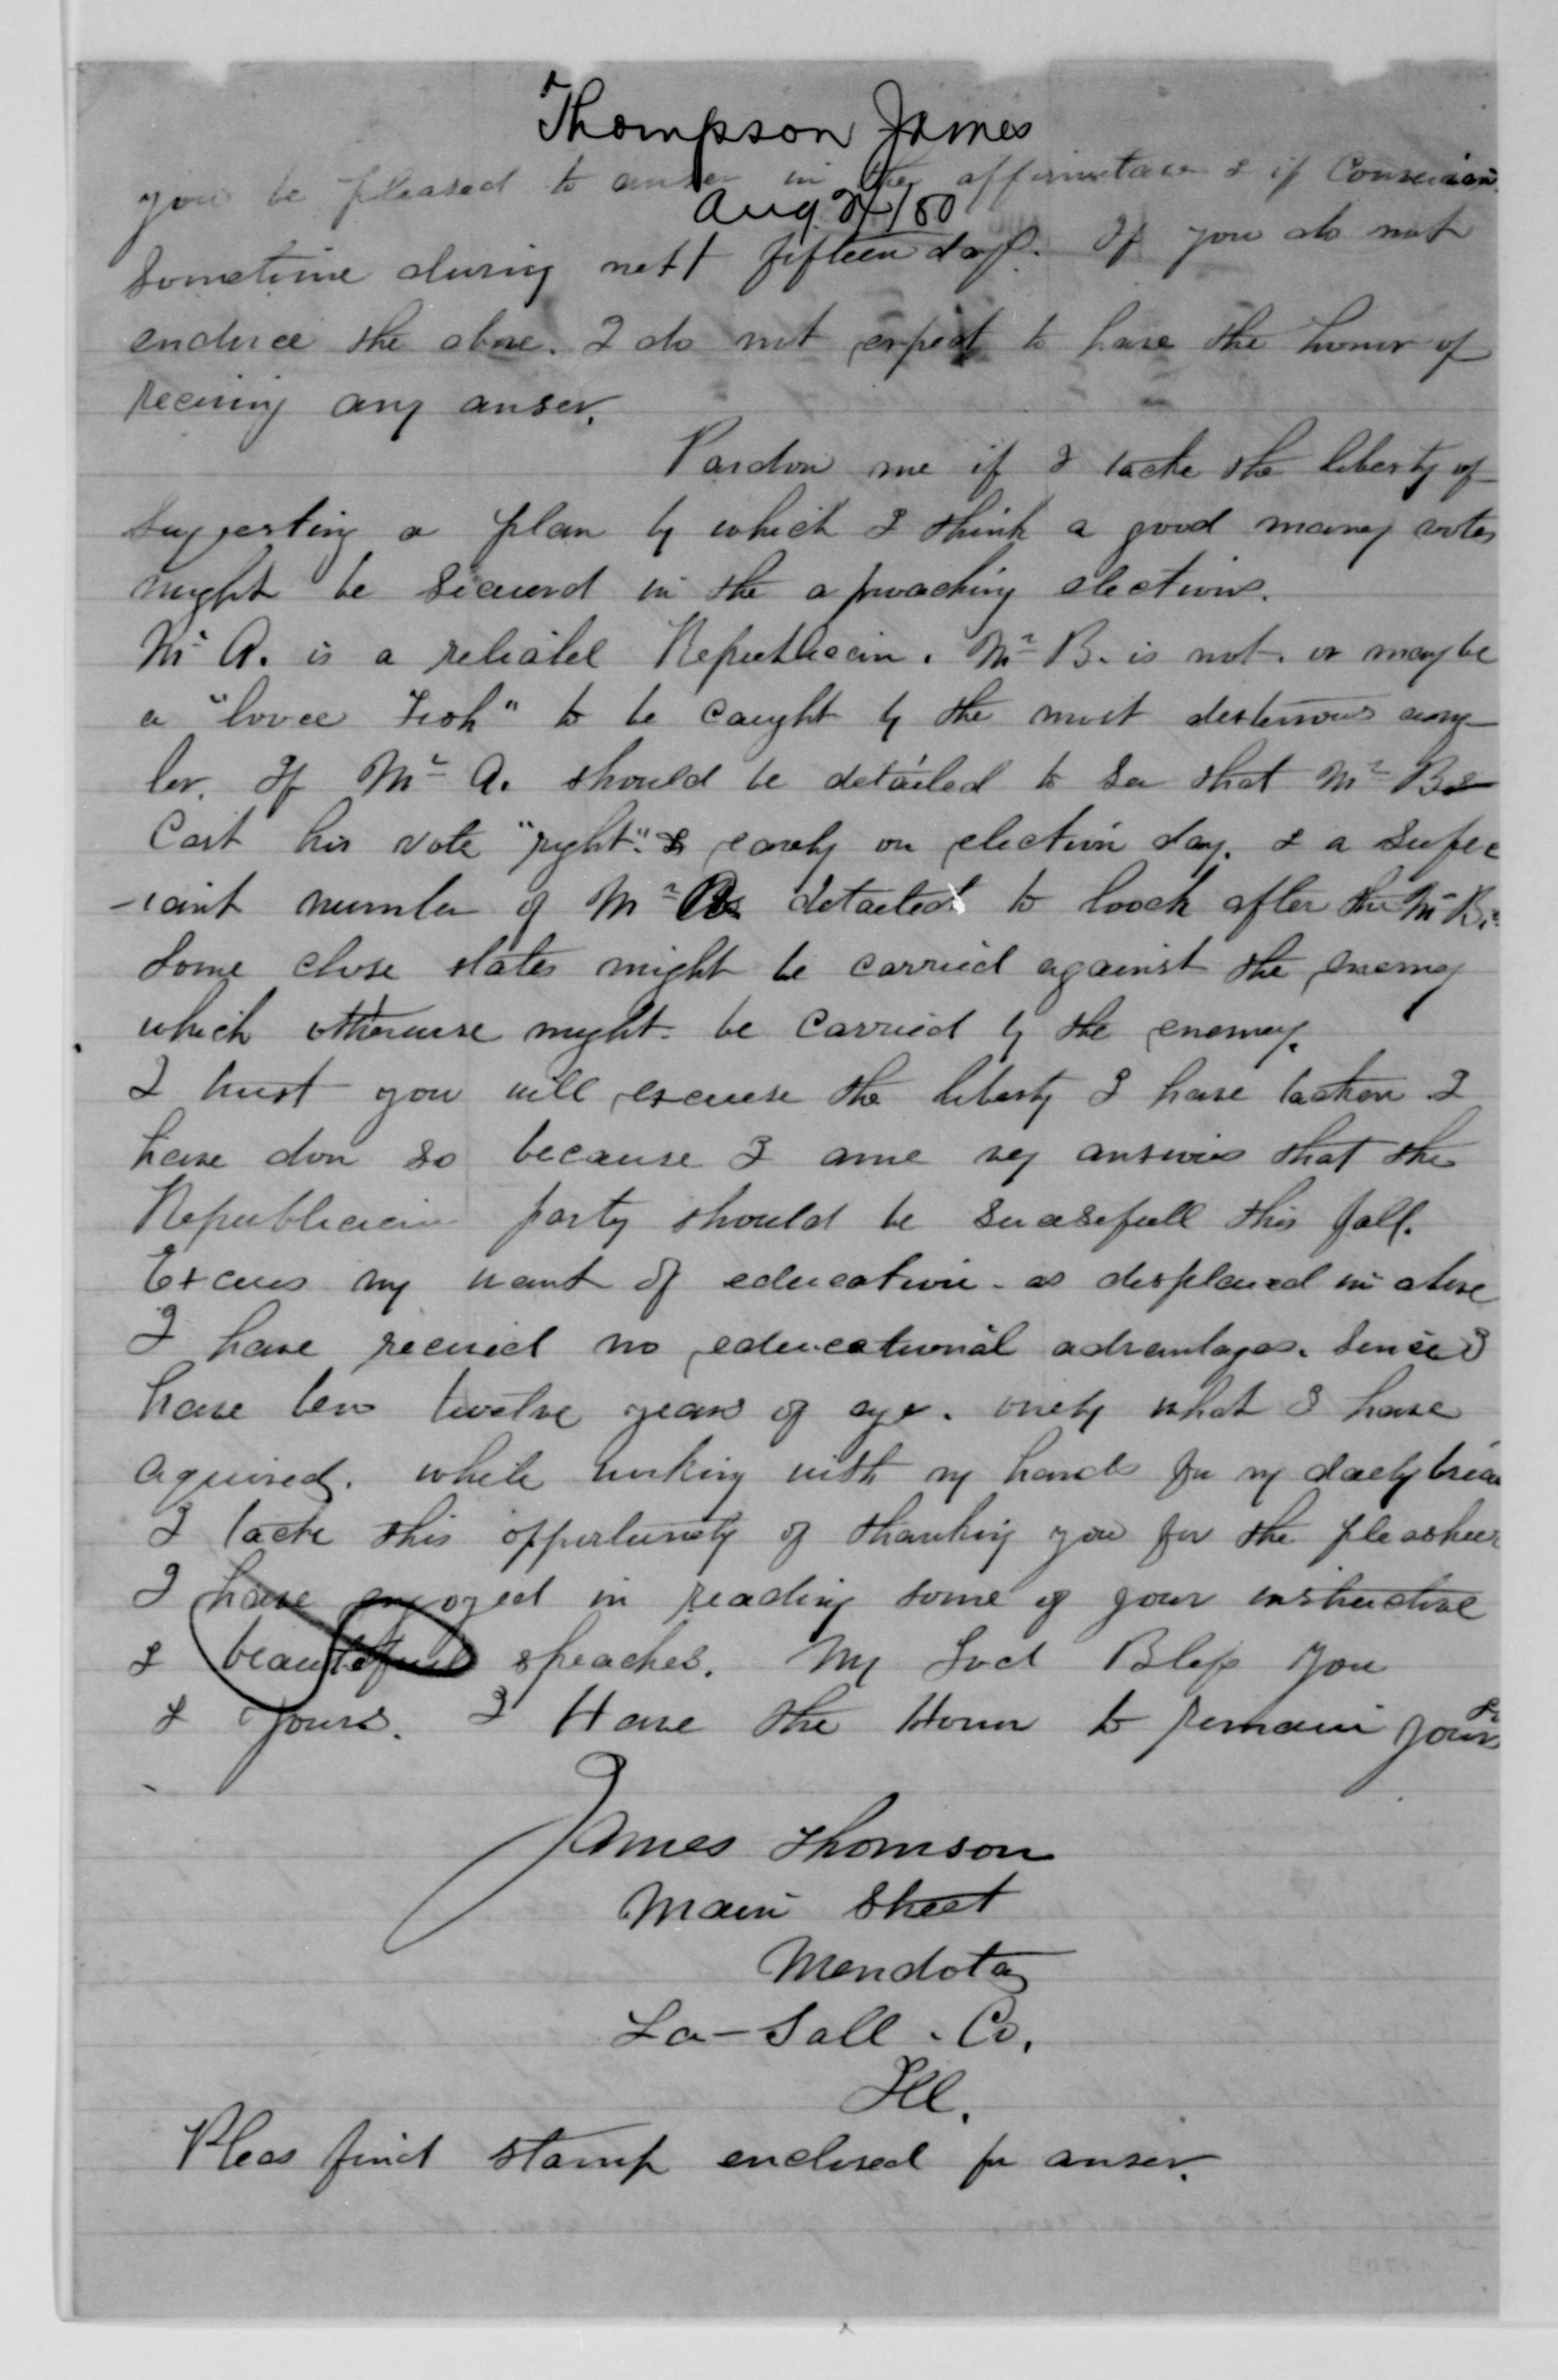 Thompson James
you be pleased to anser in the affirmitave & if Convenian
Aug 24/80
Sometime during next fifteen days. If you do not
enduce the above. I do not expect to have the honor of
receiving any anser.
Pardon me if I tacke the liberty of
suggesting a plan by which I think a good maney votes
might be Secured in the aproaching elections.
Mr A. is a reliabel Republiccin. Mr B. is not. or maybe
a "lovce Fish" to be Caught by the most desterious ang-
ler. If Mr A. should be detailed to See that Mr B
Cast his vote "right" & earely on election day. & a Sufec
-iant number of Mr As detailed to loock after the Mr Bs
Some close states might be carried against the enemey
which otherwise might be Carried by the enemey.
I trust you will excuese the liberty I have tacken. I
have don so because I ame vey anxious that the
Republiccin party should be sucessfull this fall.
Excues my want of education as displaied in above
I have recevied no educational advantages. Since I
have ben twelve years of age. onely what I have
aquired. while working with my hands for my daely bread
I tacke this oppertunety of thanking you for the pleashur
I have enjoyed in reading some of your instructive
& beautefull speaches. My God Bless You
& Yours. I Have the Honor to remain yours
James Thomson
Main Street
Mendota
La-Sall. Co.
Ill.
Pleas find stamp enclosed for anser.